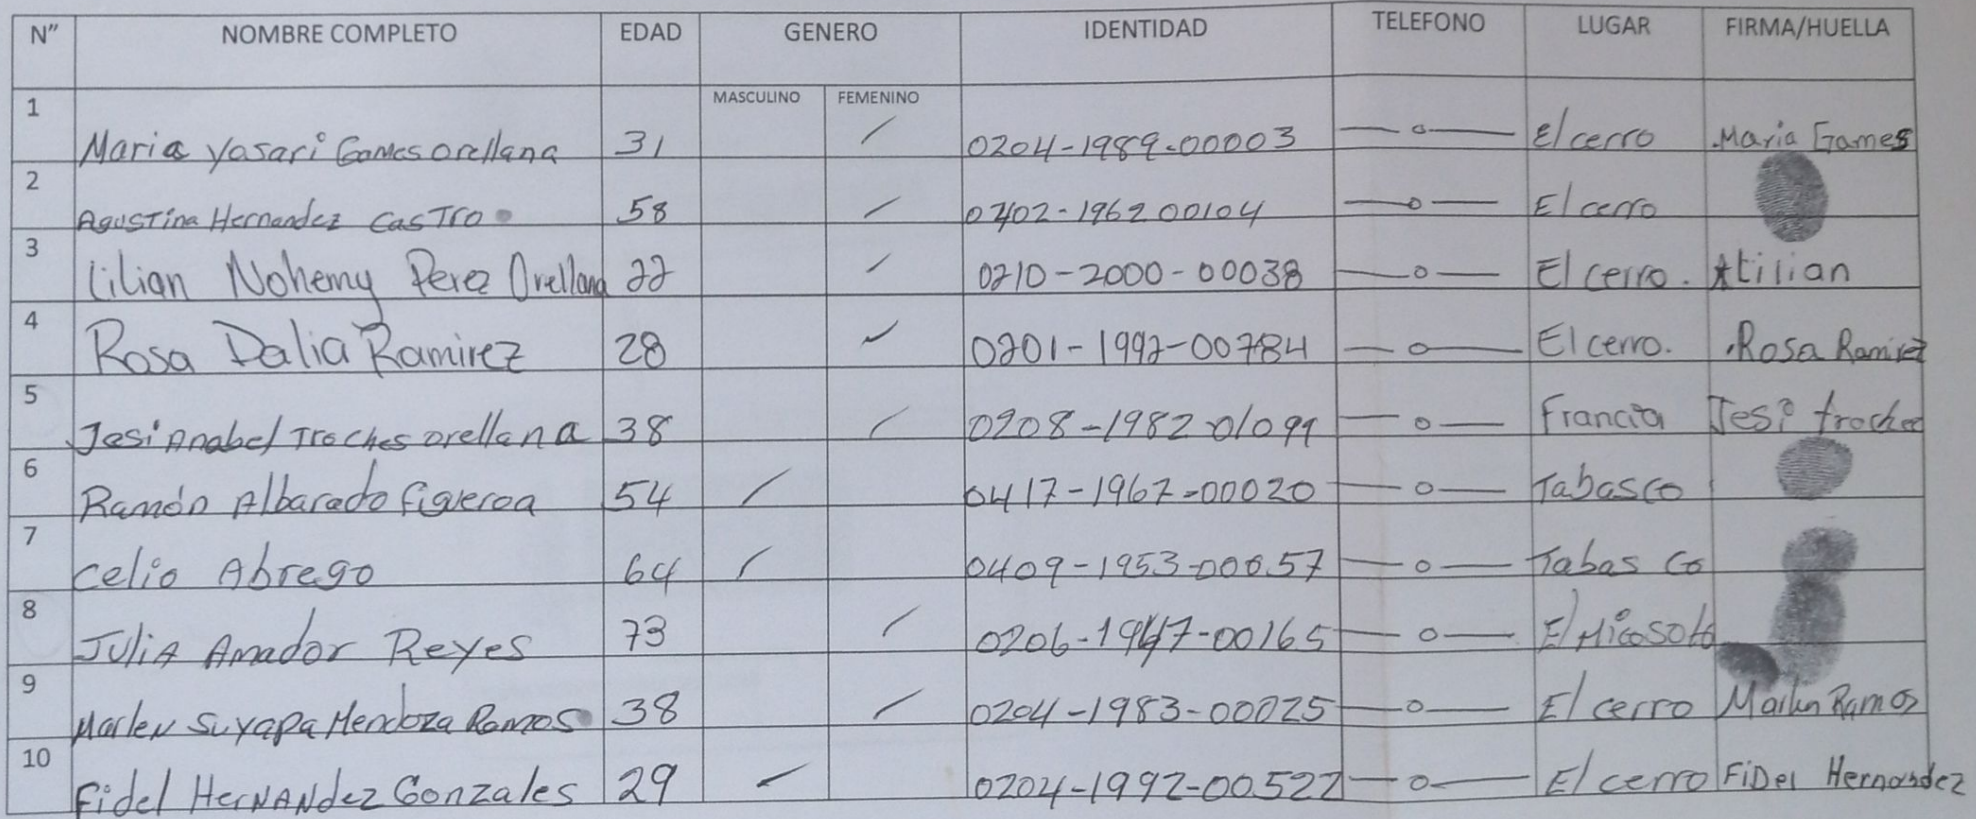 N" NOMBRE COMPLETO EDAD GENERO IDENTIDAD TELEFONO LUGAR FIRMA/HUELLA
MASCULINO FEMENINO
1 Maria Yosari Gomes orellana 31 / 0204-1989-00003 —o— El cerro Maria Games
2 Agustina Hernandez Castro 58 / 0402-1962 00104 —o— El cerro
3 Lilian Nohemy Perez Orellana 22 / 0210-2000-00038 —o— El cerro. Lilian
4 Rosa Dalia Ramirez 28 / 0201-1992-00784 —o— El cerro. Rosa Ramirez
5 Jesi Anabel Troches orellana 38 / 0208-1982-01099 —o— Francia Jesi troches
6 Ramón Albarado figueroa 54 / 0417-1967-00020 —o— Tabasco
7 Celio Abrego 64 / 0409-1953-00057 —o— Tabas Co
8 Julia Amador Reyes 73 / 0206-1947-00165 —o—
9 Marlen Suyapa Mendoza Ramos 38 / 0204-1983-00025 —o— El cerro Marlen Ramos
10 Fidel Hernandez Gonzales 29 / 0204-1992-00522 —o— El cerro Fidel Hernandez